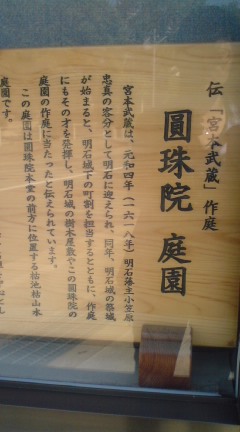 伝「宮本武蔵」作庭
圓珠院 庭園
宮本武蔵は、元和四年(一六一八年)明石藩主小笠原
忠真の客分として明石に迎えられ、同年、明石城の築城
が始まると、明石城下の町割を担当するとともに、作庭
にもその才を発揮し、明石城の樹木屋敷やこの圓珠院の
庭園の作庭に当たったと伝えられています。
この庭園は圓珠院本堂の前方に位置する枯池枯山水
庭園です。